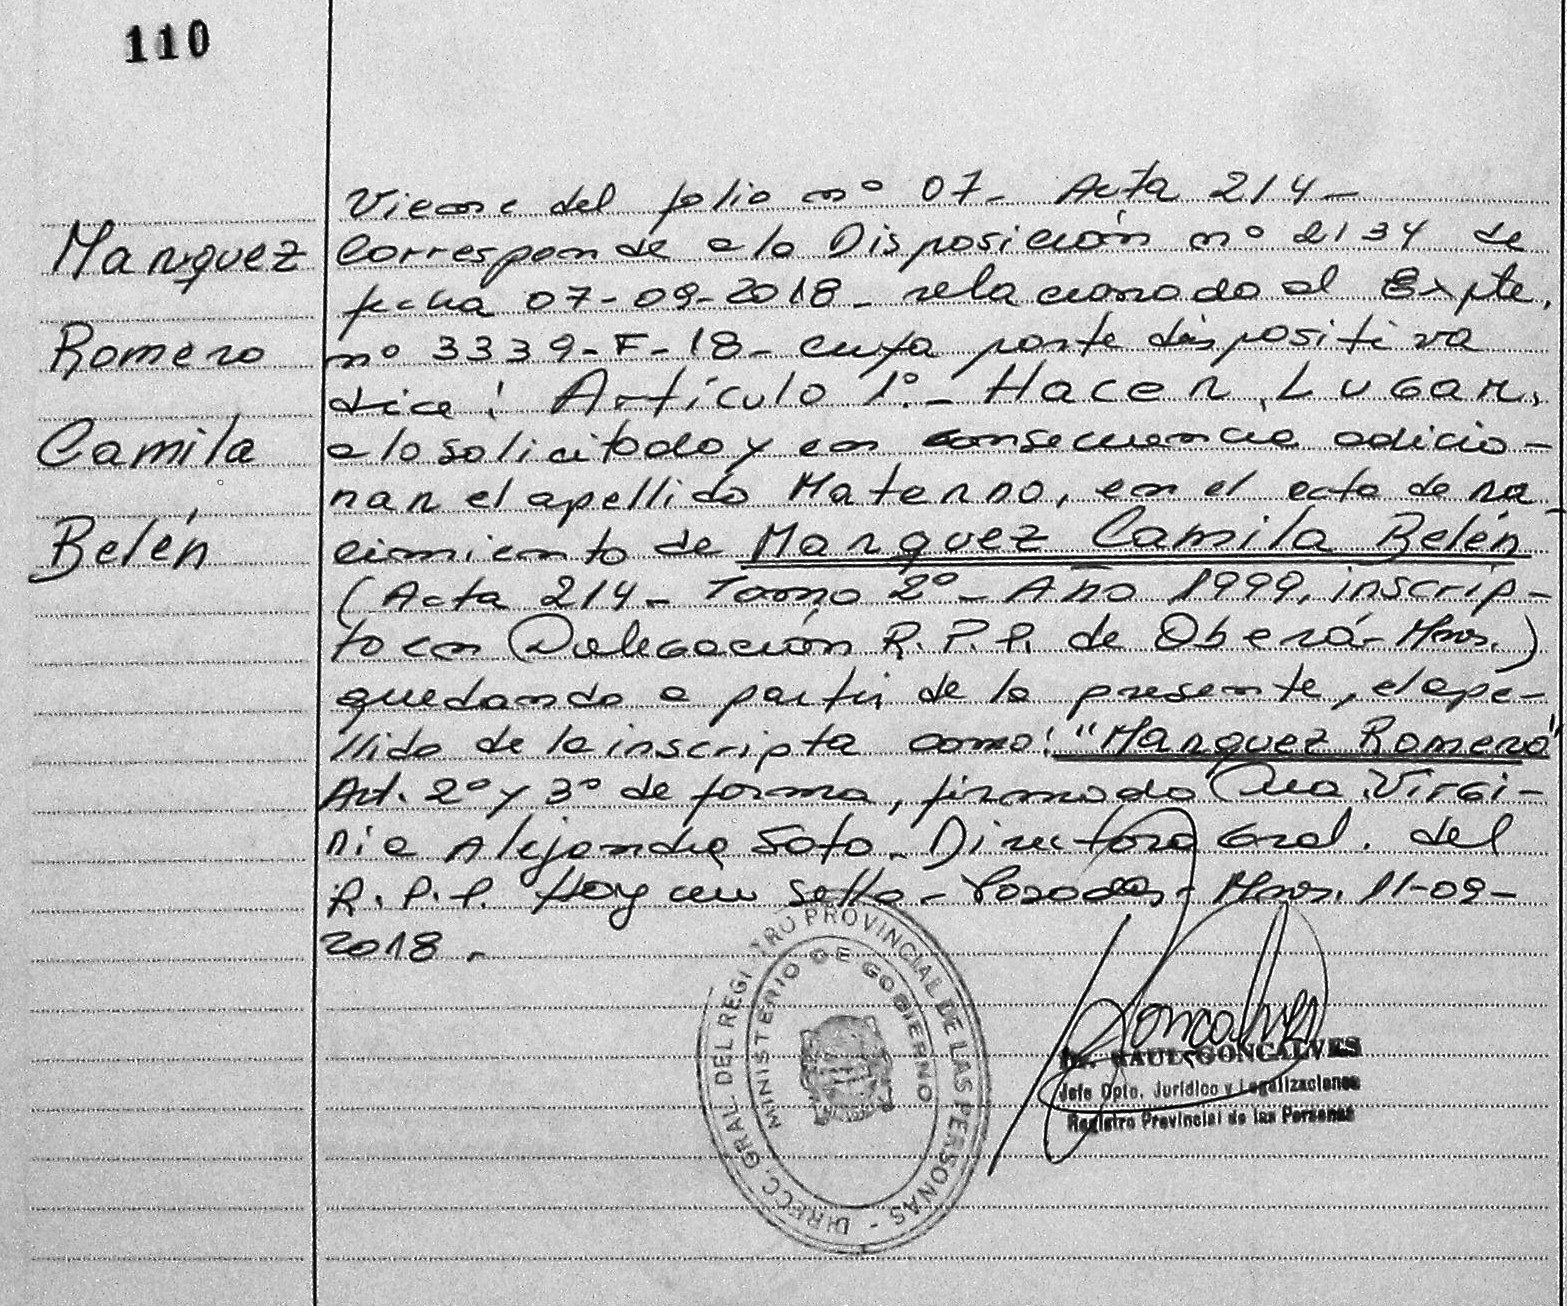 110
Marquez
Romero
Camila
Belén
Viene del folio nº 07- Acta 214-
Corresponde a la Disposición nº 2134 de
fecha 07-09-2018- relacionado al Expte.
nº 3339-F-18- cuya parte dispositiva
dice: Artículo 1º.- Hacer Lugar,
a lo solicitado y en consecuencia adicio-
nar el apellido Materno, en el acta de na-
cimiento de Marquez Camila Belén
(Acta 214- Tomo 2º- Año 1999, inscrip-
to en Delegación R.P.P. de Oberá- Mnes.)
quedando a partir de la presente, el ape-
llido de la inscripta como: "Marquez Romero"
Art. 2º y 3º de forma, firmado Dra Virgi-
nia Alejandra Soto- Directora Gral. del
R.P.P. Hay un sello- Posadas- Mnes. 11-09-
2018.-
DIRECC. GRAL. DEL REGISTRO PROVINCIAL DE LAS PERSONAS -
MINISTERIO DE GOBIERNO
Dr. RAUL GONCALVES
Jefe Dpto. Jurídico y Legalizaciones
Registro Provincial de las Personas